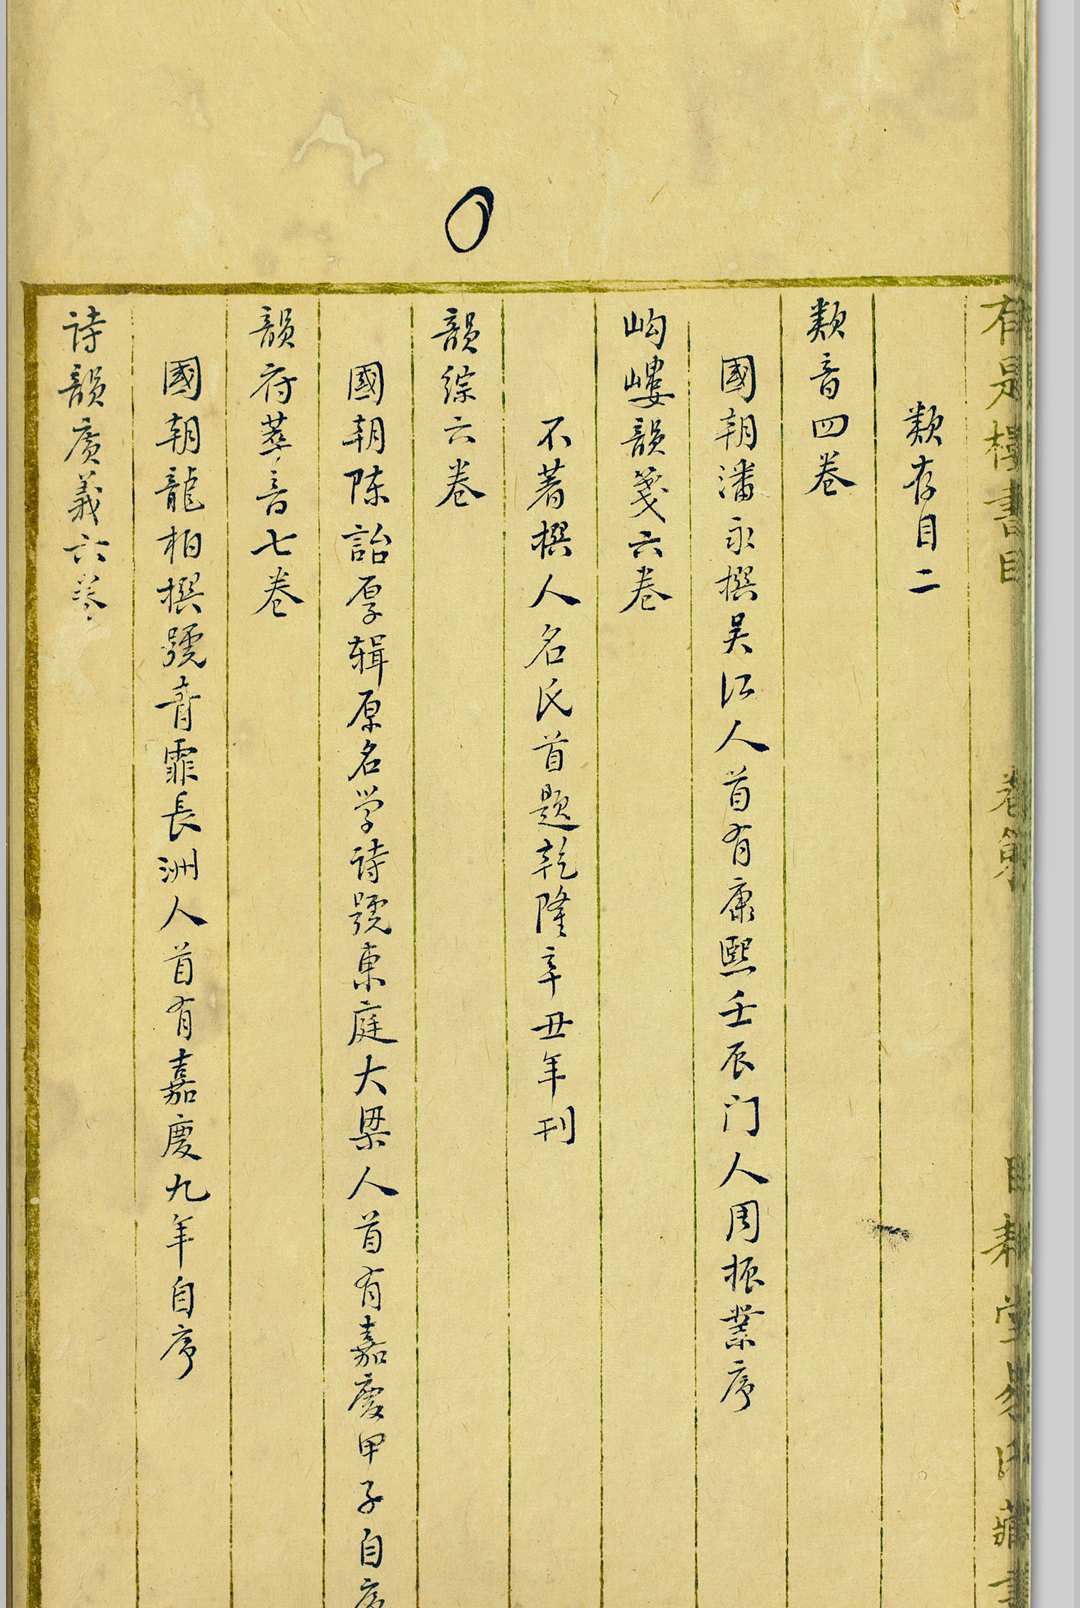 書目
類存目二
類音四卷
國朝潘永撰吴江人首有康熙壬辰门人周振業序
岣嶁韻箋六卷
不著撰人名氏首題乾隆辛丑年刊
韻綜六卷
國朝陈詒厚辑原名学诗號東庭大梁人首有嘉慶甲子自序
韻府萃音七卷
國朝龍柏撰號青霏長洲人首有嘉慶九年自序
诗韻廣義六卷